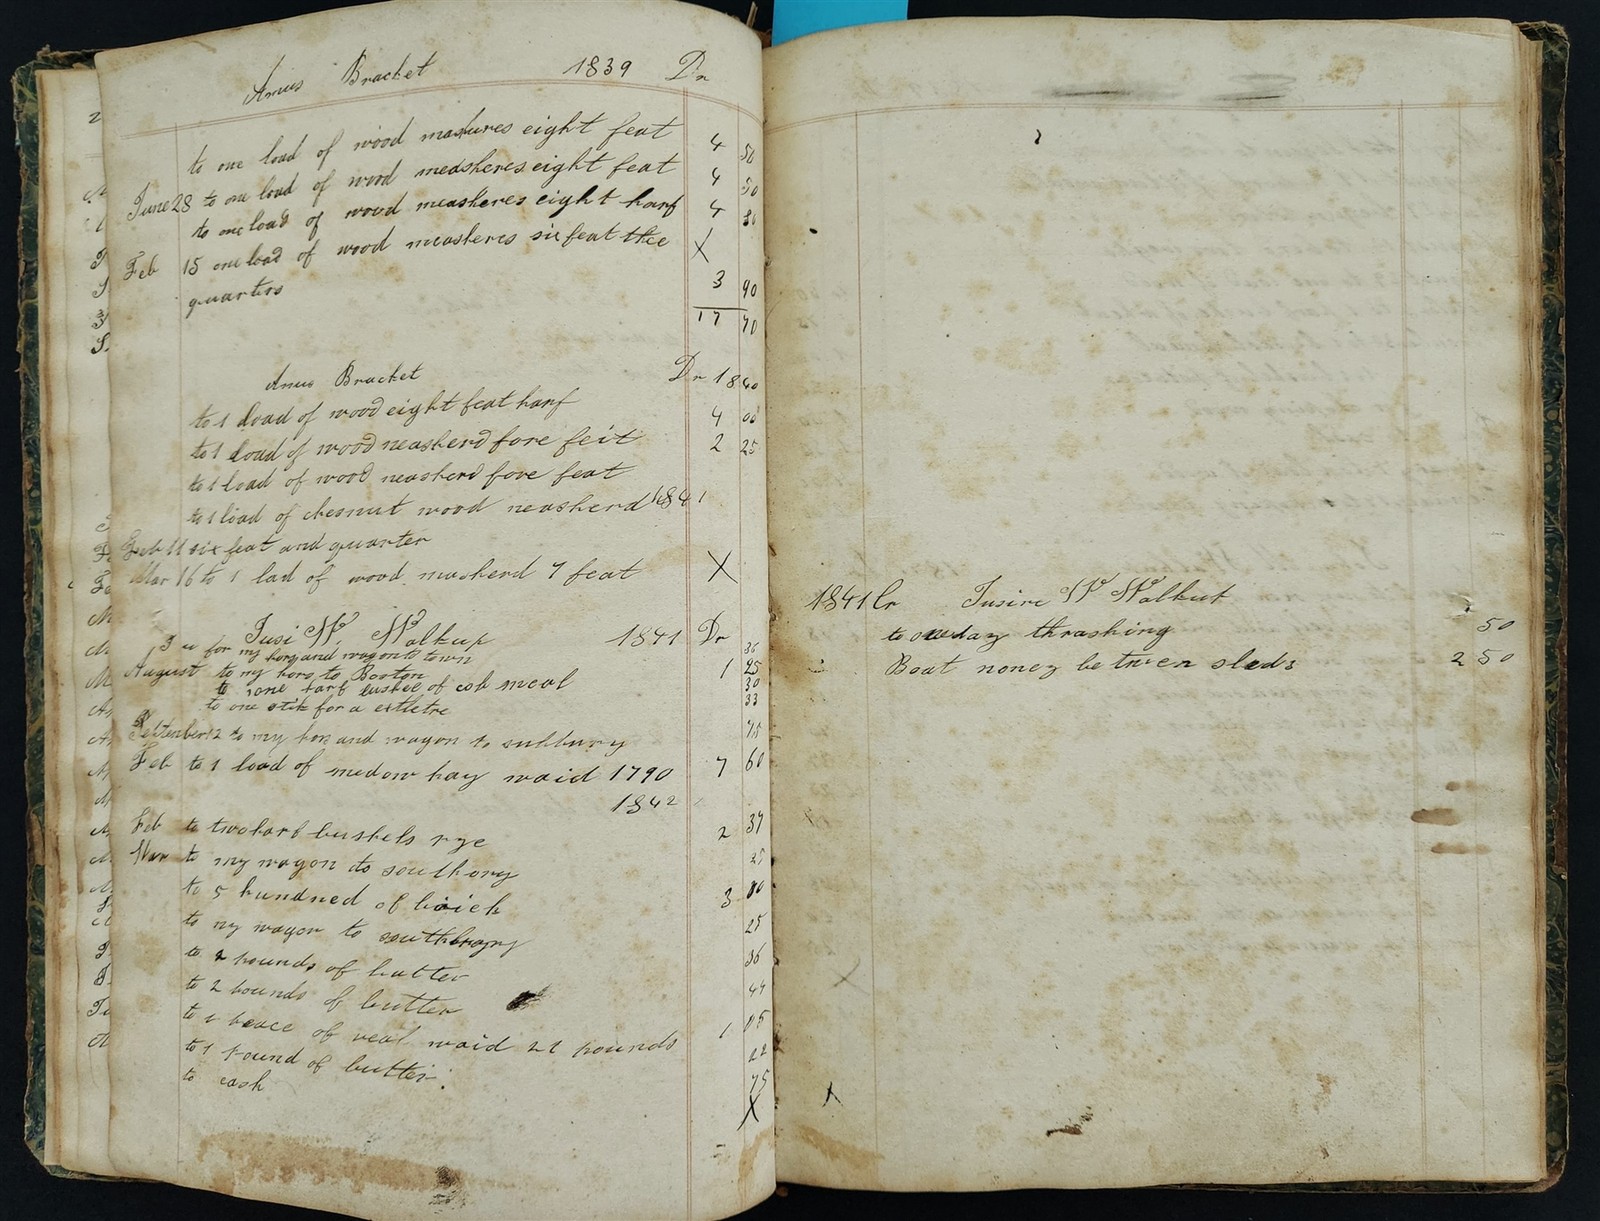 Amus Bracket 1839 Dr
to one load of wood masures eight feat 4 50
June 28 to one load of wood measheres eight feat 4 50
to one load of wood measheres eight harf 4 80
Feb 15 one load of wood measheres six feat thee X
quarters 3 90
17 70
Amus Bracket Dr 1840
to 1 load of wood eight feat harf 4 00
to 1 load of wood measherd fore feit 2 25
to 1 load of wood measherd fore feat
to 1 load of chesnut wood measherd 1841
Feb 11 six feat and quarter
Mar 16 to 1 lad of wood measherd 7 feat X
Jusi W Walkup 1841 Dr
for my hors and wagon to town 36
August to my hors to Boston 1 25
to one harf bushel of cob meal 30
to one stik for a 33
September 12 to my hors and wagon to sudbury 75
Feb to 1 load of medow hay waid 1790 7 60
1842
Feb to two harf bushels rye 2 37
Mar to my wagon to southbory 25
to 5 hundned of brick 3 00
to my wagon to southbory 25
to 2 pounds of butter 36
to 2 pounds of butter 44
to 1 peace of veal waid 21 pounds 1 05
to 1 pound of butter 22
to cash 75
X
1841 Cr Jusire W Walkut
to oneday thrashing 50
Boat money between sleds 2 50
X
X